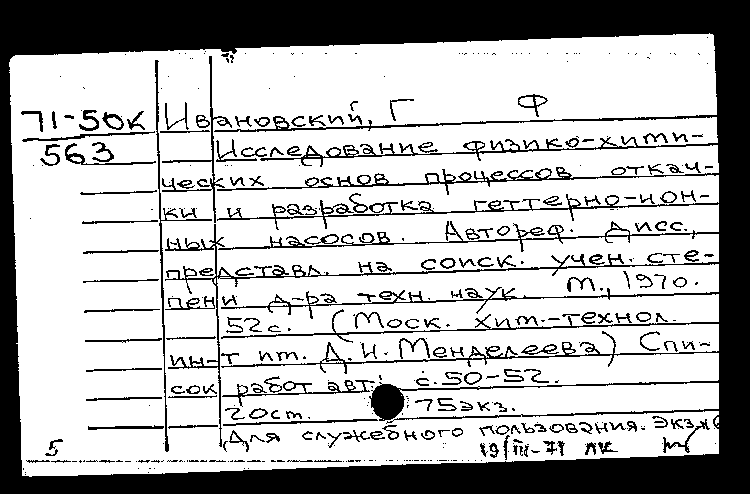 71-50к Ивановский, Г Ф
563 Исследование физико-хими-
ческих основ процессов откач-
ки и разработка геттерно-ион-
ных насосов. Автореф. дисс.,
представл. на соиск. учен. сте-
пени д-ра техн. наук. М., 1970.
52с. (Моск. хим.-технол.
ин-т им. Д. И. Менделеева) Спи-
сок работ авт.: с. 50-52.
20см. 75экз.
Для служебного пользования. Экз.
5 19/III-71